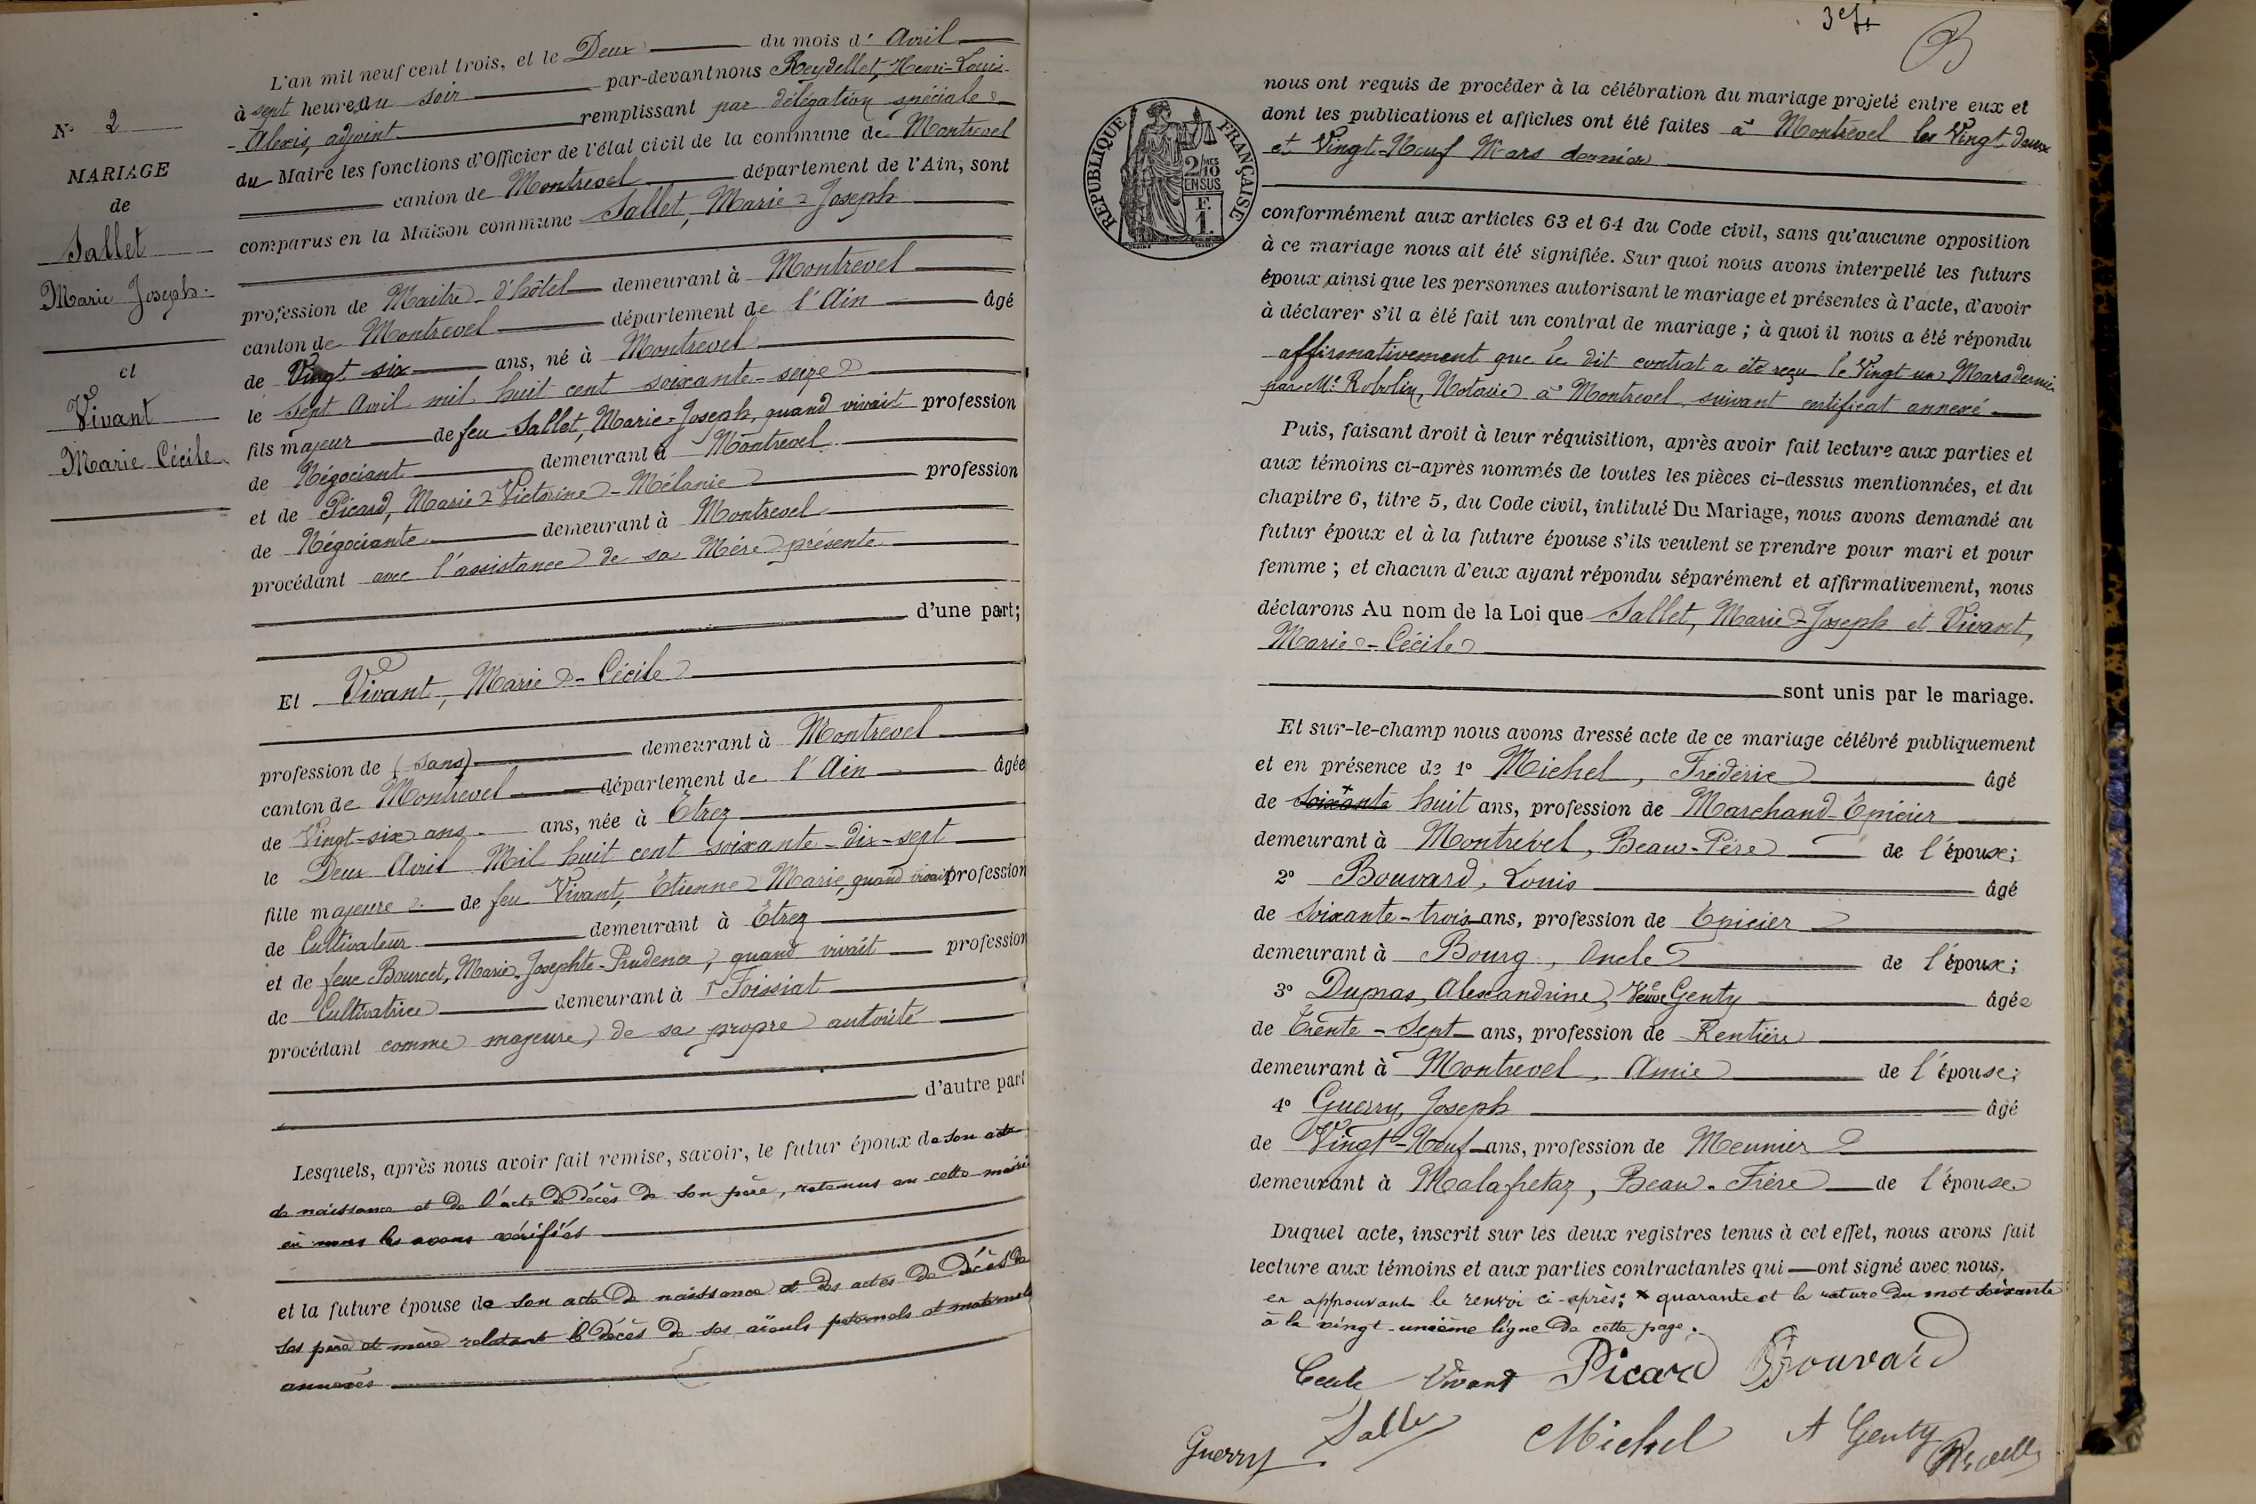 N° 2
MARIAGE
de
Sallet
Marie Joseph
et
Vivant
Marie Cécile
L'an mil neuf cent trois, et le Deux du mois d' Avril
à sept heures du soir par-devant nous Reydellet, Henri-Louis-
-Alexis, adjoint remplissant par délégation spéciale
du Maire les fonctions d'Officier de l'état civil de la commune de Montrevel
canton de Montrevel département de l'Ain, sont
comparus en la Maison commune Sallet, Marie-Joseph
profession de Maître-d'hôtel demeurant à Montrevel
canton de Montrevel département de l'Ain âgé
de Vingt-six ans, né à Montrevel
le Sept Avril mil huit cent soixante-seize
fils majeur de feu Sallet, Marie-Joseph, quand vivait profession
de Négociant demeurant à Montrevel
et de Picard, Marie-Victorine-Mélanie profession
de Négociante demeurant à Montrevel
procédant avec l'assistance de sa Mère présente
d'une part;
Et Vivant, Marie-Cécile
profession de (sans) demeurant à Montrevel
canton de Montrevel département de l'Ain âgée
de Vingt-six ans ans, née à Etrez
le Deux Avril Mil huit cent soixante-dix-sept
fille majeure de feu Vivant, Etienne-Marie, quand vivait profession
de Cultivateur demeurant à Etrez
et de feue Bourcet, Marie-Josephte-Prudence, quand vivait profession
de Cultivatrice demeurant à Foissiat
procédant comme majeure, de sa propre autorité
d'autre part
Lesquels, après nous avoir fait remise, savoir, le futur époux de son acte
de naissance et de l'acte de décès de son père, retenus en cette mairie
où nous les avons vérifiés
et la future épouse de son acte de naissance et des actes de décès de
ses père et mère relatant le décès de ses aïeuls paternels et maternels
annexés
B
RÉPUBLIQUE FRANÇAISE
2/10
EN SUS
F.
1.
nous ont requis de procéder à la célébration du mariage projeté entre eux et
dont les publications et affiches ont été faites à Montrevel les Vingt-deux
et Vingt-Neuf Mars dernier
conformément aux articles 63 et 64 du Code civil, sans qu'aucune opposition
à ce mariage nous ait été signifiée. Sur quoi nous avons interpellé les futurs
époux ainsi que les personnes autorisant le mariage et présentes à l'acte, d'avoir
à déclarer s'il a été fait un contrat de mariage ; à quoi il nous a été répondu
affirmativement que le dit contrat a été reçu le Vingt un Mars dernier
par Me Robolin, Notaire à Montrevel suivant certificat annexé
Puis, faisant droit à leur réquisition, après avoir fait lecture aux parties et
aux témoins ci-après nommés de toutes les pièces ci-dessus mentionnées, et du
chapitre 6, titre 5, du Code civil, intitulé Du Mariage, nous avons demandé au
futur époux et à la future épouse s'ils veulent se prendre pour mari et pour
femme ; et chacun d'eux ayant répondu séparément et affirmativement, nous
déclarons Au nom de la Loi que Sallet, Marie-Joseph et Vivant,
Marie-Cécile
sont unis par le mariage.
Et sur-le-champ nous avons dressé acte de ce mariage célébré publiquement
et en présence de 1° Michel, Frédéric âgé
de soixante huit ans, profession de Marchand-Epicier
demeurant à Montrevel, Beau-Père de l'épouse;
2° Bouvard, Louis âgé
de Soixante-trois ans, profession de Epicier
demeurant à Bourg, Oncle de l'époux;
3° Dumas, Alexandrine, Veuve Genty âgée
de Trente-Sept ans, profession de Rentière
demeurant à Montrevel, Amie de l'épouse;
4° Guerry, Joseph âgé
de Vingt-Neuf ans, profession de Meunier
demeurant à Malafretaz, Beau-Frère de l'épouse
Duquel acte, inscrit sur les deux registres tenus à cet effet, nous avons fait
lecture aux témoins et aux parties contractantes qui ont signé avec nous,
en approuvant le renvoi ci-après: x quarante et la rature du mot soixante
à la vingt-unième ligne de cette page.
Cécile Vivant Picard Bouvard
Guerry Sallet Michel A Genty